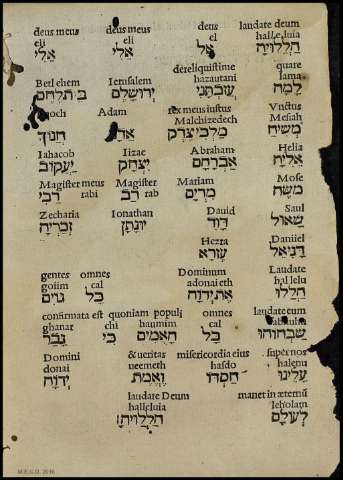 deus meus deus meus deus laudate deum
eli eli el halleluia
אֵלִי אֵלִי אֵל הַלְלוּיָה
dereliquistime quare
hazautani lama
עֲזַבְתָּנִי לָמָה
Betlehem Ierusalem
בֵּתלֶחֶם יְרוּשָׁלֵם
rex meus iustus Vnctus
Enoch Adam Malchizedech Mesiah
חֲנוֹךְ אָדָם מַלְכִּיצֶדֶק מָשִׁיחַ
Iahacob Iizac Abraham Helia
יַעֲקוֹב יִצְחָק אַבְרָהָם אֵלִיָּה
Magister meus Magister Mariam Mose
rabi rab
רַבִּי רַב מִרְיָם מֹשֶׁה
Zecharia Ionathan Dauid Saul
זְכַרְיָה יוֹנָתָן דָּוִד שָׁאוּל
Hezra Daniiel
עֶזְרָא דָּנִיאֵל
gentes omnes Dominum Laudate
goiim cal adonai eth hallelu
כָּל גּוֹיִם אֶת יְהוָה הַלְלוּ
confirmata est quoniam populi omnes laudate eum
ghanar chi haumim cal
גָּבַר כִּי הָאֻמִּים כָּל שַׁבְּחוּהוּ
Domini & ueritas misericordia eius super nos
donai ueemeth hasdo halenu
יְהוָה וֶאֱמֶת חַסְדּוֹ עָלֵינוּ
laudate Deum manet in æternũ
halleluia leholam
הַלְלוּיָה לְעוֹלָם